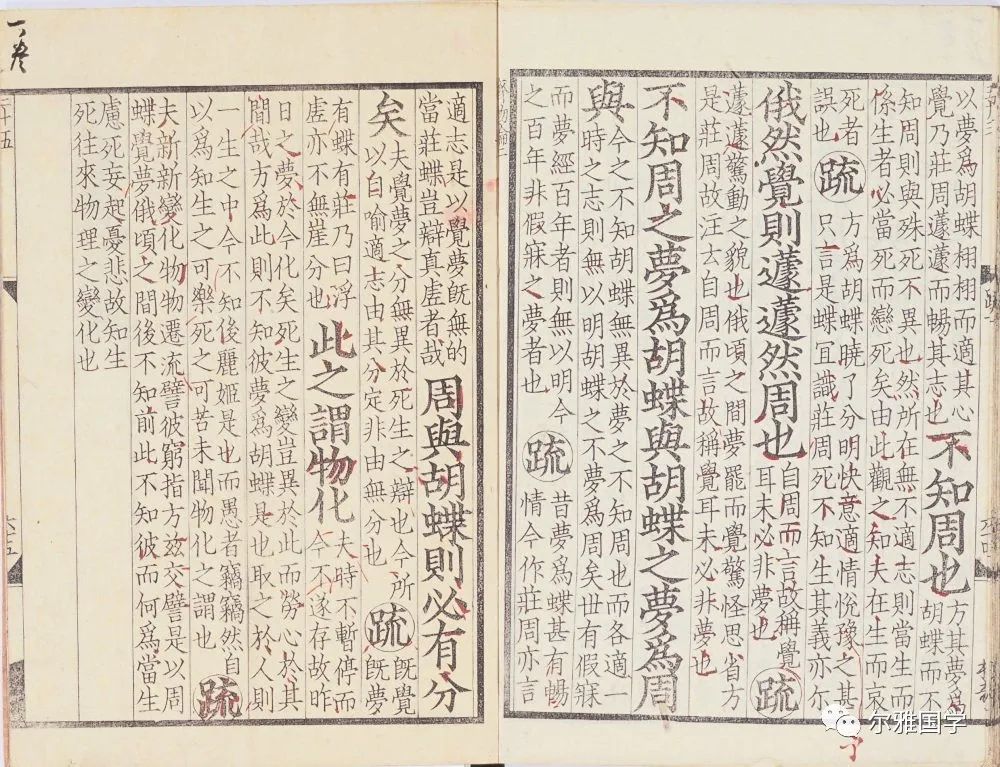 以夢爲胡蝶栩栩而適其心
覺乃莊周蘧蘧而暢其志也
不知周也
方其夢爲
胡蝶而不
知周則與殊死不異也然所在無不適志則當生而
係生者必當死而戀死矣由此觀之知夫在生而哀
死者
誤也
疏
方爲胡蝶曉了分明快意適情悅豫之甚
只言是蝶冝識莊周死不知生其義亦尔
俄然覺則蘧蘧然周也
自周而言故稱覺
耳未必非夢也
疏
蘧蘧驚動之貌也俄頃之間夢罷而覺驚怪思省方
是莊周故注云自周而言故稱覺耳未必非夢也
不知周之夢爲胡蝶與胡蝶之夢爲周
與
今之不知胡蝶無異於夢之不知周也而各適一
時之志則無以明胡蝶之不夢爲周矣世有假寐
而夢經百年者則無以明今
之百年非假寐之夢者也
疏
昔夢爲蝶甚有暢
情今作莊周亦言
適志是以覺夢旣無的
當莊蝶豈辯真虛者哉
周與胡蝶則必有分
矣
夫覺夢之分無異於死生之辯也今所
以自喻適志由其分定非由無分也
疏
旣覺
旣夢
有蝶有莊乃曰浮
虛亦不無崖分也
此之謂物化
夫時不暫停而
今不遂存故昨
日之夢於今化矣死生之變豈異於此而勞心於其
間哉方爲此則不知彼夢爲胡蝶是也取之於人則
一生之中今不知後麗姬是也而愚者竊竊然自
以爲知生之可樂死之可苦未聞物化之謂也
疏
夫新新變化物物遷流譬彼窮指方兹交譬是以周
蝶覺夢俄頃之間後不知前此不知彼而何爲當生
慮死妄起憂悲故知生
死往來物理之變化也
一卷
二十五
尔雅国学